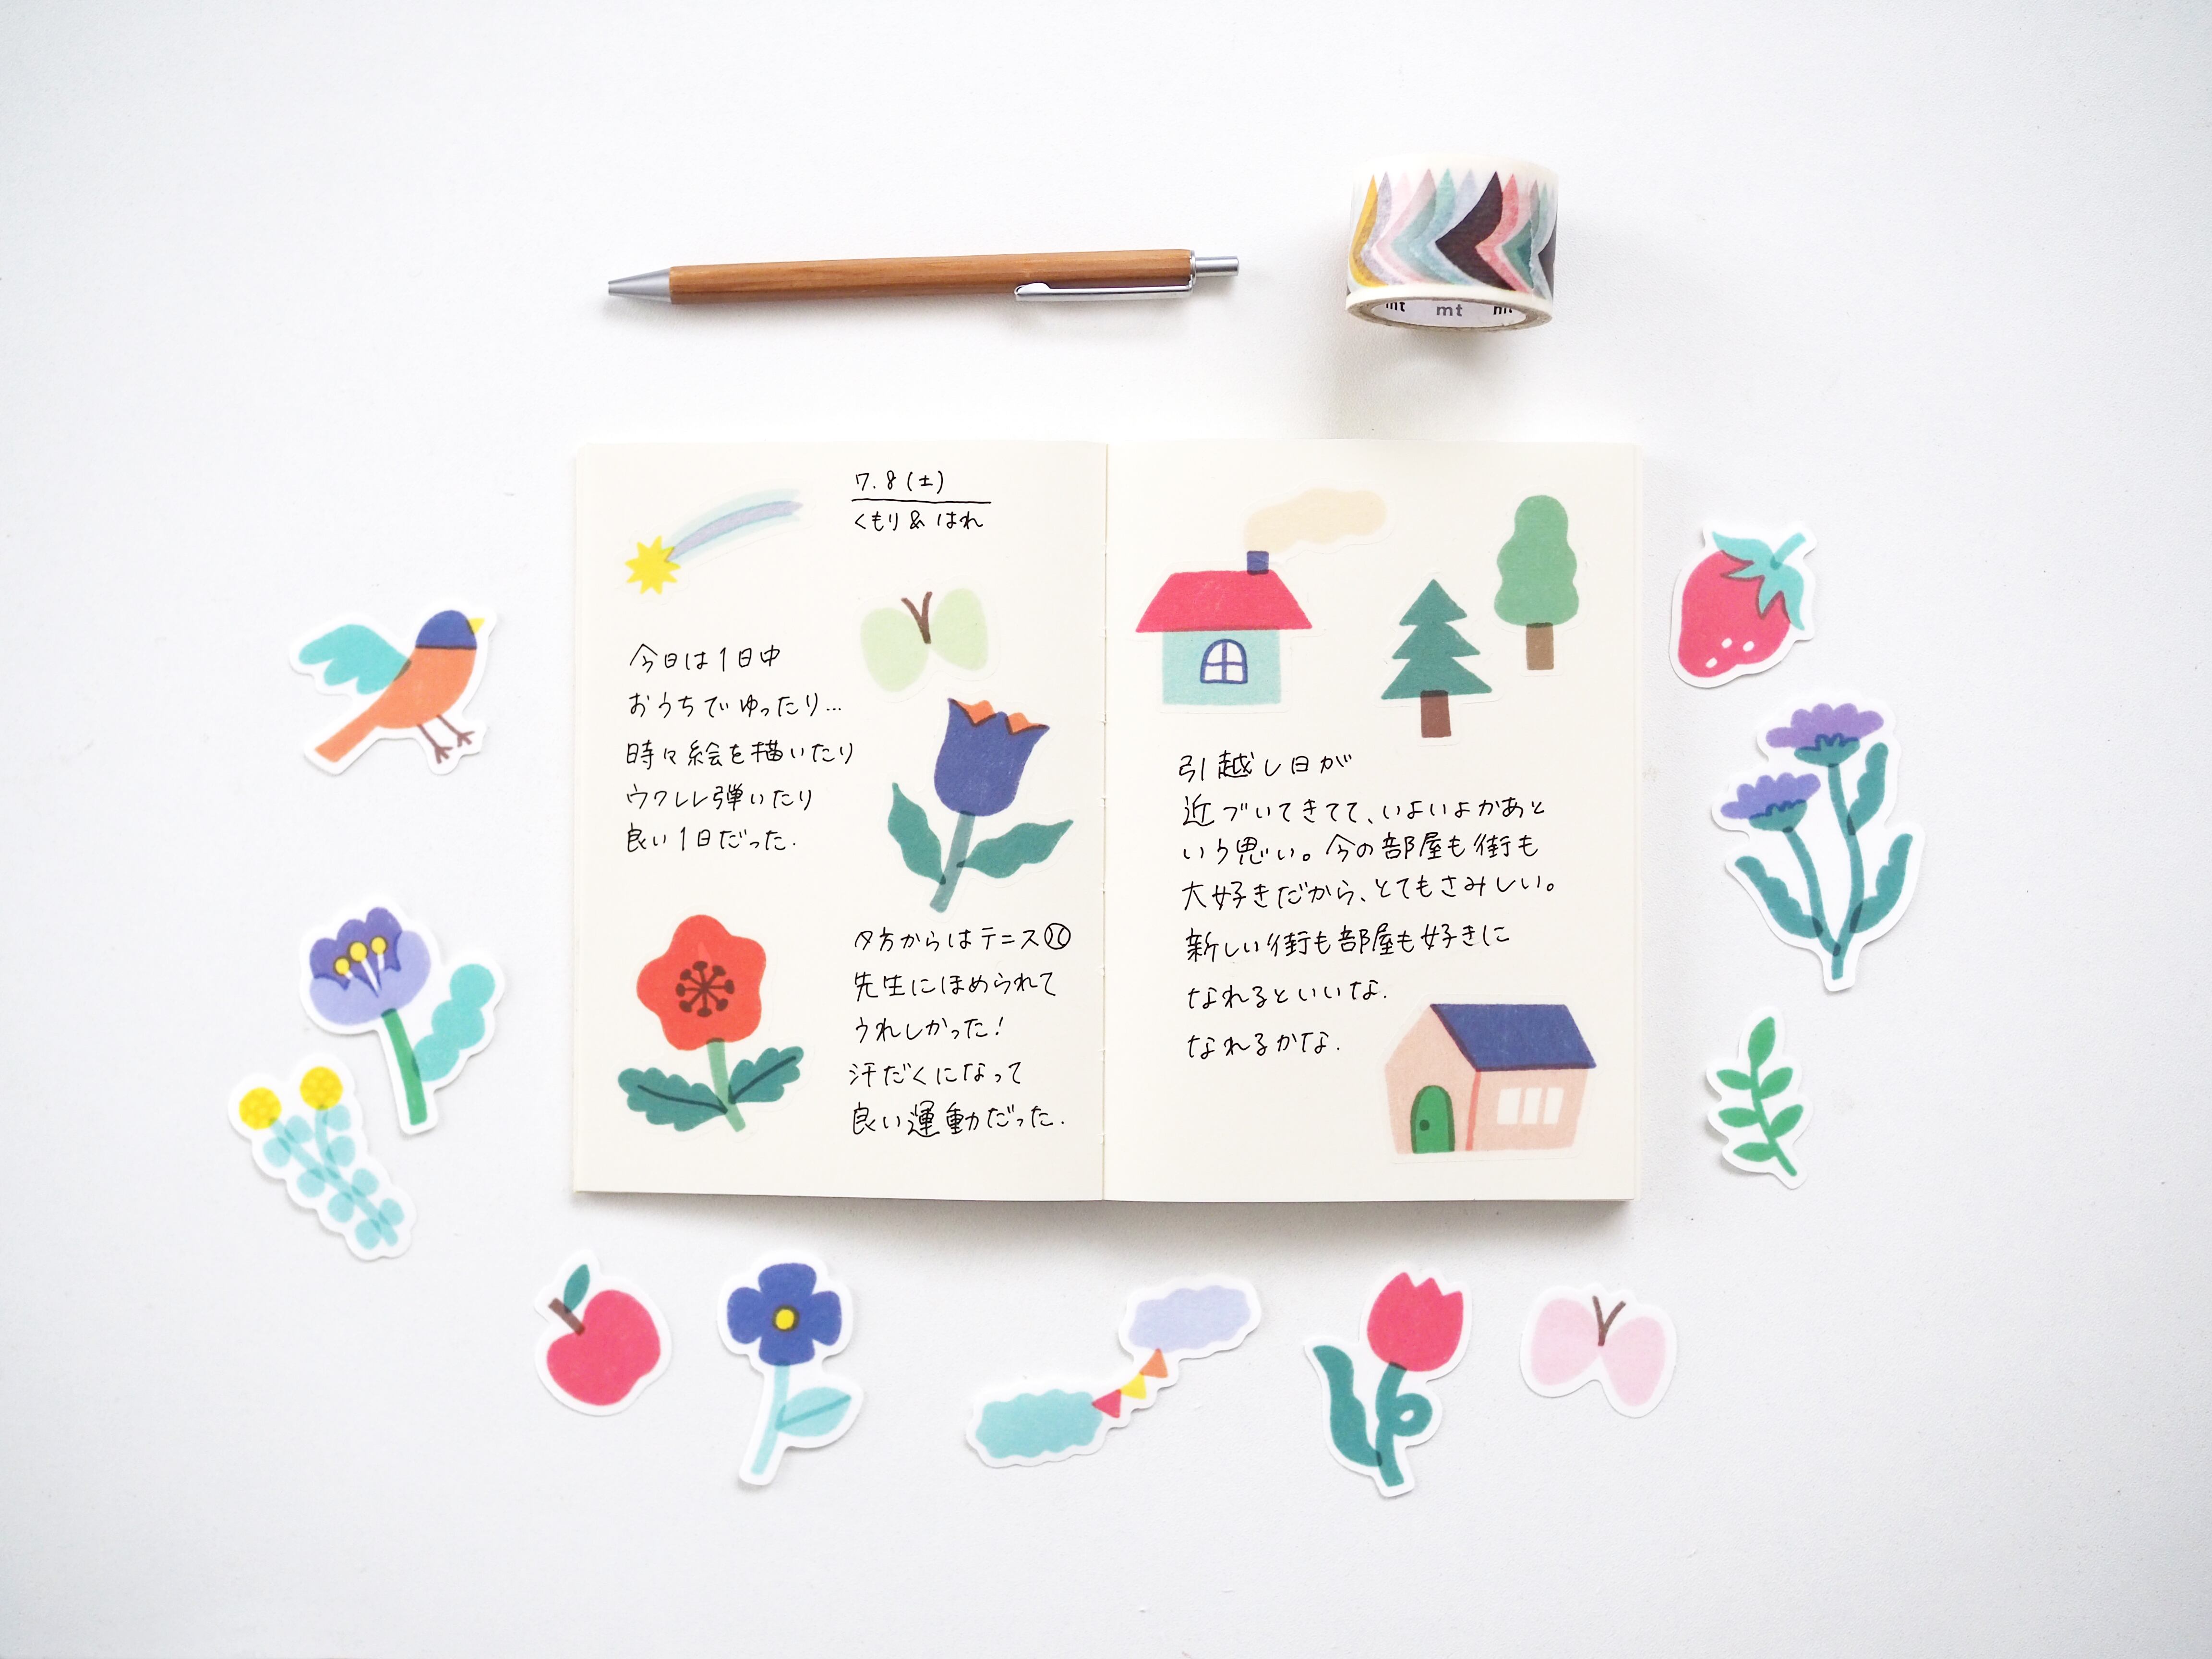 mt mt mt
7.8(土)
くもり&はれ
今日は1日中
おうちでゆったり...
時々絵を描いたり
ウクレレ弾いたり
良い1日だった.
夕方からはテニス
先生にほめられて
うれしかった!
汗だくになって
良い運動だった.
引越し日が
近づいてきてて、いよいよかあと
いう思い。今の部屋も街も
大好きだから、とてもさみしい。
新しい街も部屋も好きに
なれるといいな.
なれるかな.